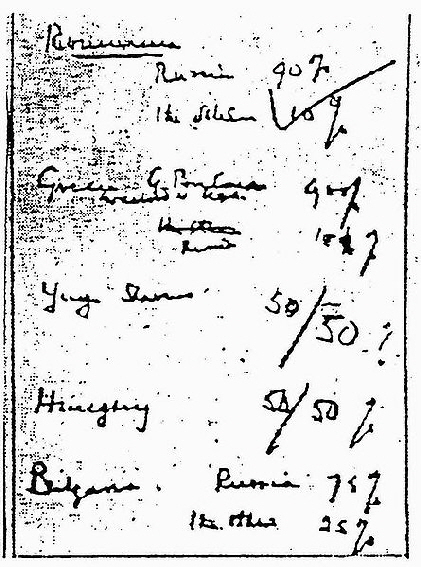 Roumania
Russia 90%
The others 10%
Greece G. Britain 90%
in accord with USA
The others
Russia 10%
Yugoslavia 50/50%
Hungary 50/50%
Bulgaria. Russia 75%
the others 25%